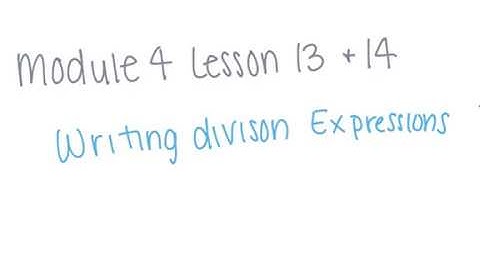 Module 4 Lesson 13 + 14
Writing divison Expressions